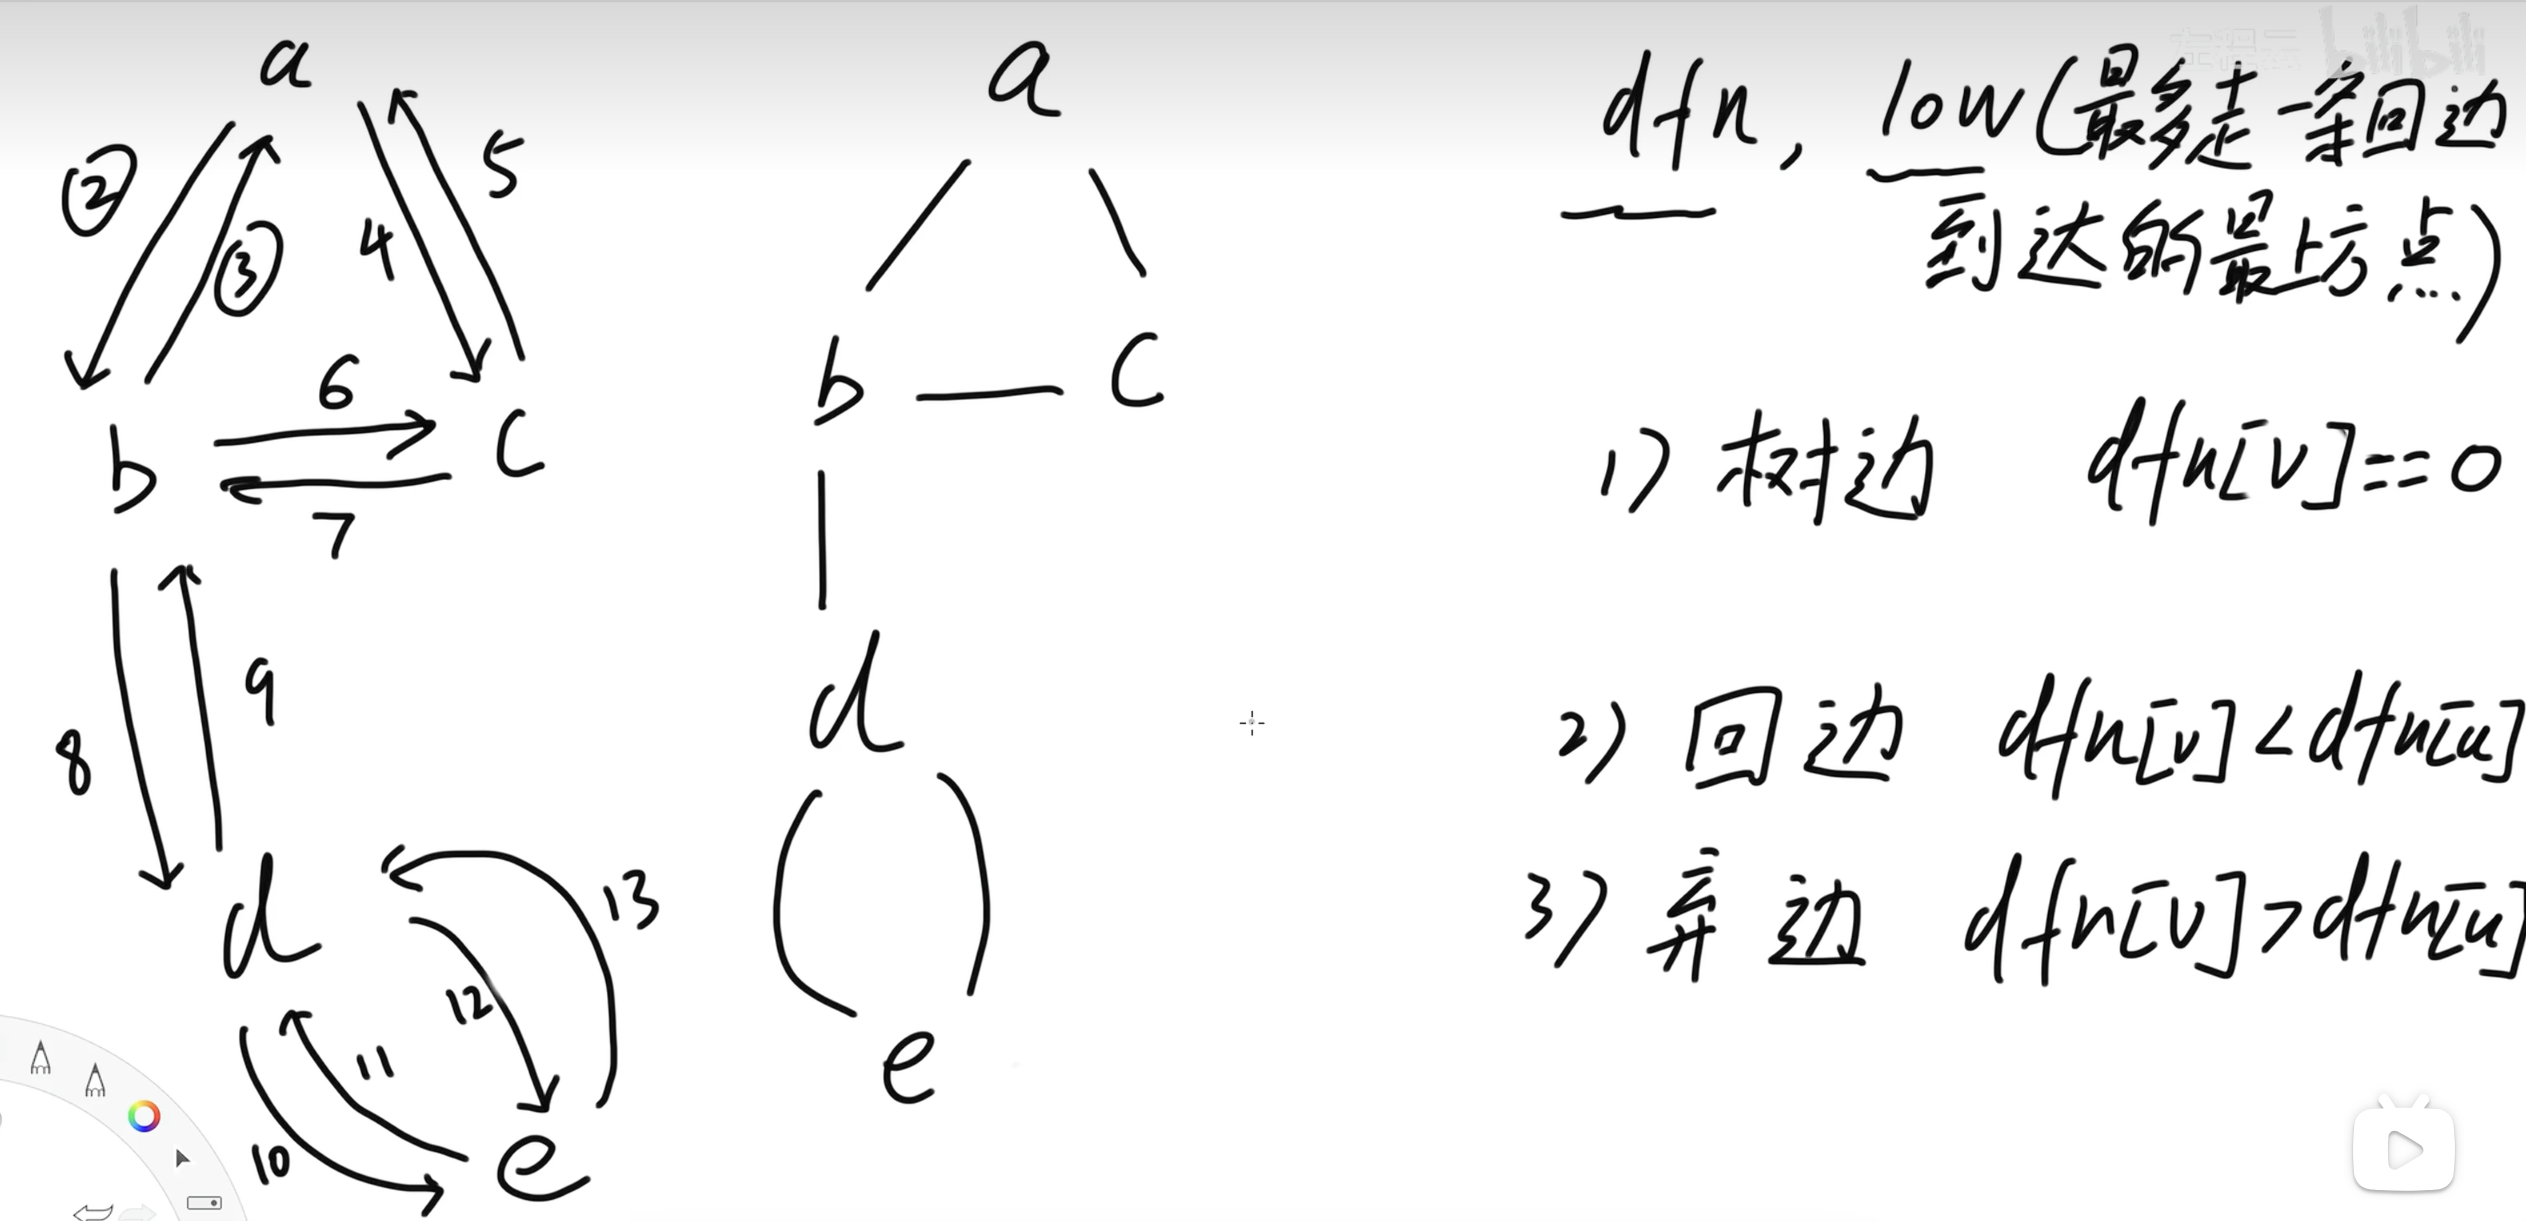 a
②
③
4
5
b
6
7
c
8
9
d
10
11
12
13
e
a
b
c
d
e
bilibili
dfn, low(最多走一条回边
到达的最上方点)
1) 树边 dfn[v]==0
2) 回边 dfn[v]<dfn[u]
3) 弃边 dfn[v]>dfn[u]